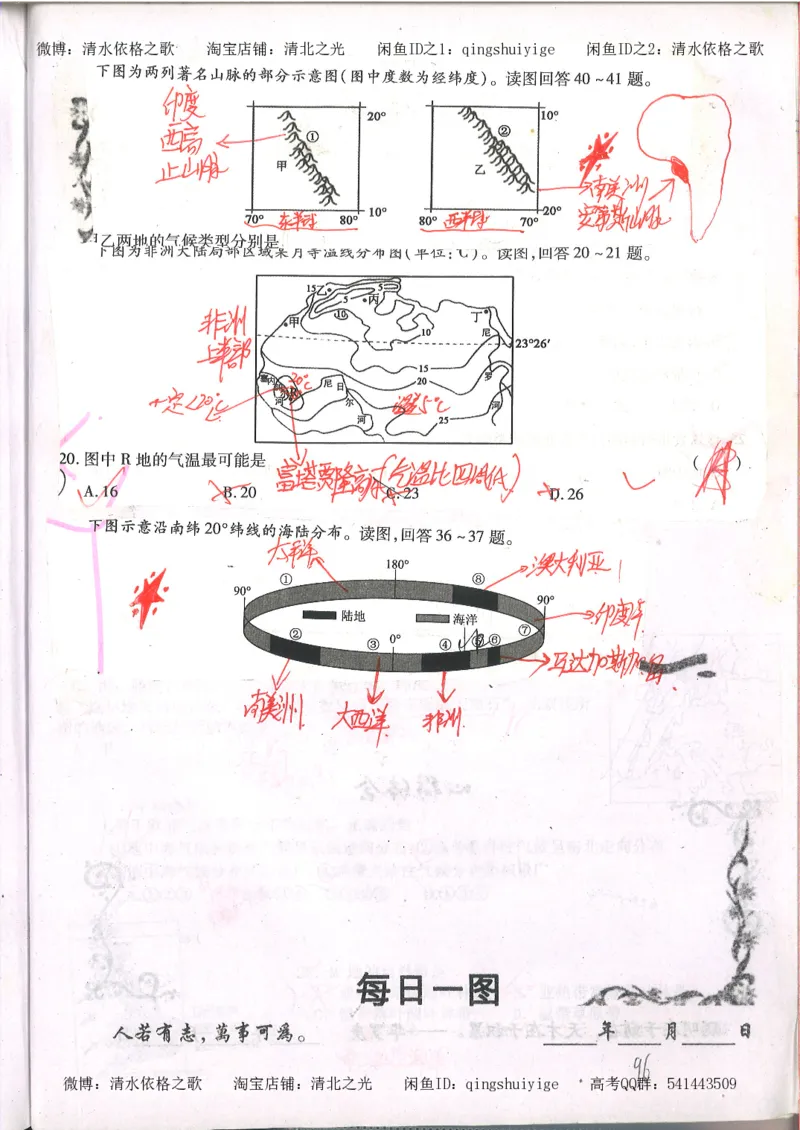 微博：清水依格之歌 淘宝店铺：清北之光 闲鱼ID之1：qingshuiyige 闲鱼ID之2：清水依格之歌
下图为两列著名山脉的部分示意图(图中度数为经纬度)。读图回答 40～41 题。
印度
西高
止山脉
① 20°
甲
10°
70° 东半球 80°
② 10°
乙
20°
80° 西半球 70°
南美洲
安第斯山脉
甲乙两地的气候类型分别是
下图为非洲大陆局部区域某月等温线分布图(单位:℃)。读图,回答 20～21 题。
非洲
上半部
15 乙 5 5 丙
甲 10 10 丁 尼
23°26′
15
20 罗
塞内 20℃ 尼日
河 R 尔 河
河 25
一定<20℃
温差5℃
20. 图中 R 地的气温最可能是 ( )
富塔贾隆高原(气温比四周低)
A. 16 B. 20 C. 23 D. 26
下图示意沿南纬 20°纬线的海陆分布。读图,回答 36～37 题。
太平洋
180°
澳大利亚
① ⑧
90° 90°
陆地 海洋
印度洋
② ③ 0° ④ ⑤ ⑥ ⑦
马达加斯加岛
南美洲 大西洋 非洲
每日一图
人若有志，萬事可為。 年 月 日
96
微博：清水依格之歌 淘宝店铺：清北之光 闲鱼ID：qingshuiyige 高考QQ群：541443509